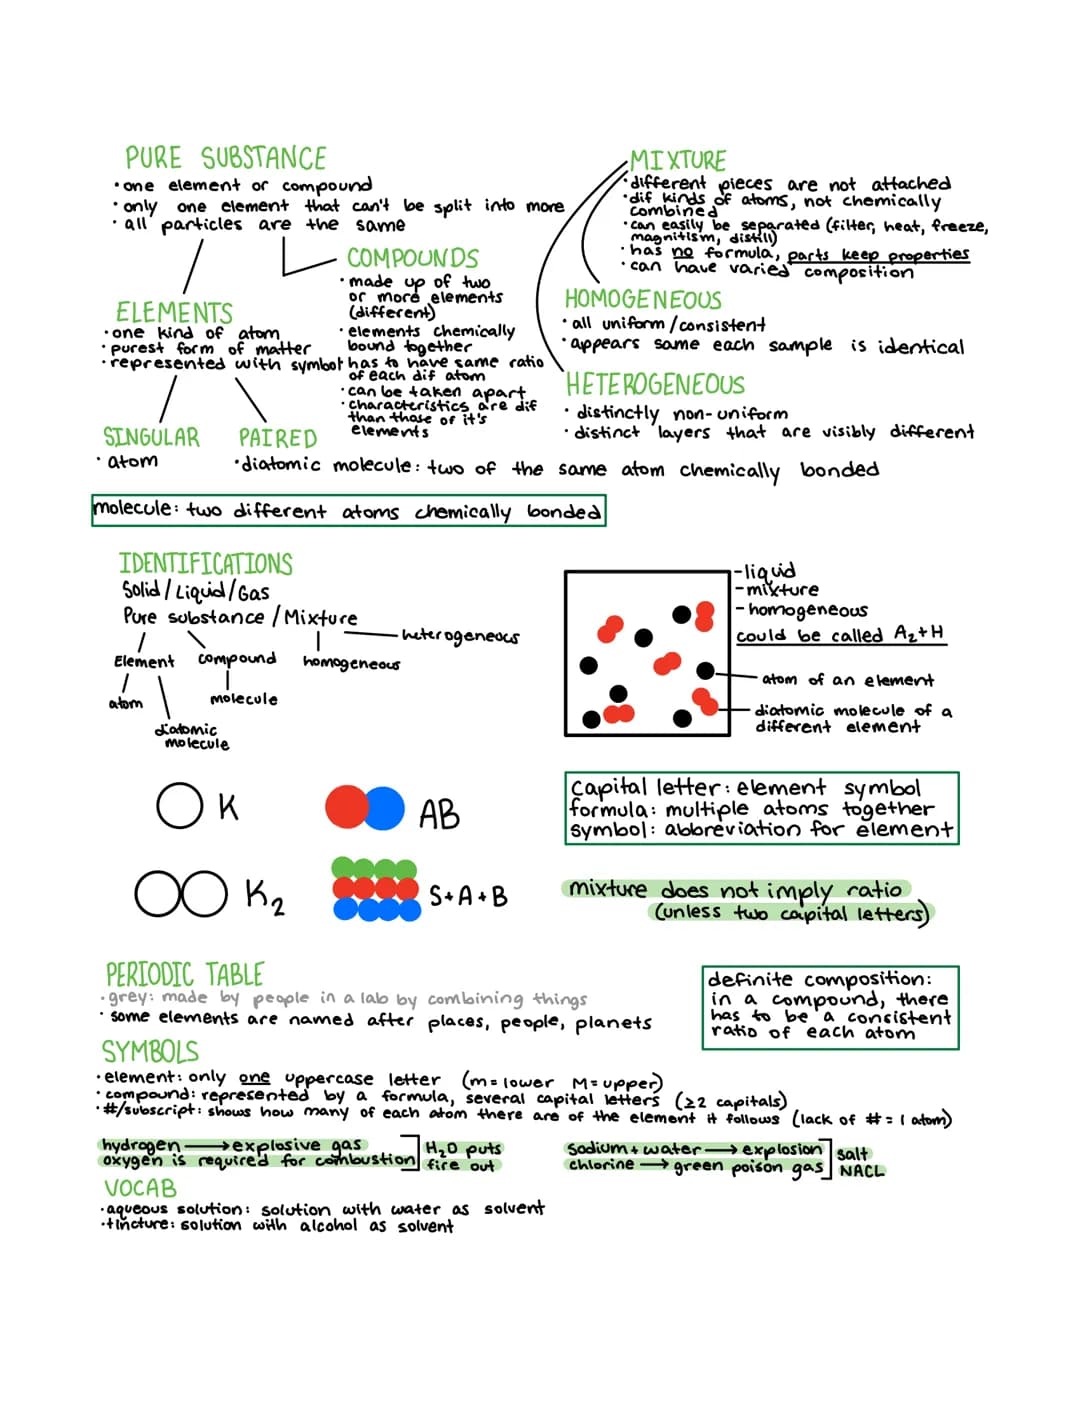 PURE SUBSTANCE
• one element or compound
• only one element that can't be split into more
• all particles are the same
MIXTURE
• different pieces are not attached
• dif kinds of atoms, not chemically
combined
• can easily be separated (filter, heat, freeze,
magnitism, distill)
• has no formula, parts keep properties
• can have varied composition
COMPOUNDS
• made up of two
or more elements
(different)
• elements chemically
bound together
• has to have same ratio
of each dif atom
• can be taken apart
• characteristics are dif
than those of it's
elements
ELEMENTS
• one kind of atom
• purest form of matter
• represented with symbol
HOMOGENEOUS
• all uniform/consistent
• appears same each sample is identical
HETEROGENEOUS
• distinctly non-uniform
• distinct layers that are visibly different
SINGULAR
• atom
PAIRED
• diatomic molecule: two of the same atom chemically bonded
molecule: two different atoms chemically bonded
IDENTIFICATIONS
Solid/Liquid/Gas
Pure substance/Mixture
heterogeneous
Element
compound
homogeneous
atom
molecule
diatomic
molecule
-liquid
-mixture
-homogeneous
could be called A₂+H
atom of an element
diatomic molecule of a
different element
K
AB
K₂
S+A+B
Capital letter: element symbol
formula: multiple atoms together
symbol: abbreviation for element
mixture does not imply ratio
(unless two capital letters)
PERIODIC TABLE
• grey: made by people in a lab by combining things
• some elements are named after places, people, planets
definite composition:
in a compound, there
has to be a consistent
ratio of each atom
SYMBOLS
• element: only one uppercase letter (m=lower M=upper)
• compound: represented by a formula, several capital letters (≥2 capitals)
• #/subscript: shows how many of each atom there are of the element it follows (lack of # = 1 atom)
hydrogen → explosive gas
oxygen is required for combustion
H₂O puts
fire out
Sodium + water → explosion
chlorine → green poison gas
salt
NACL
VOCAB
• aqueous solution: solution with water as solvent
• tincture: solution with alcohol as solvent